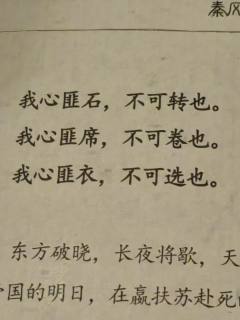 秦风
我心匪石，不可转也。
我心匪席，不可卷也。
我心匪衣，不可选也。
东方破晓，长夜将歇，天
国的明日，在嬴扶苏赴死